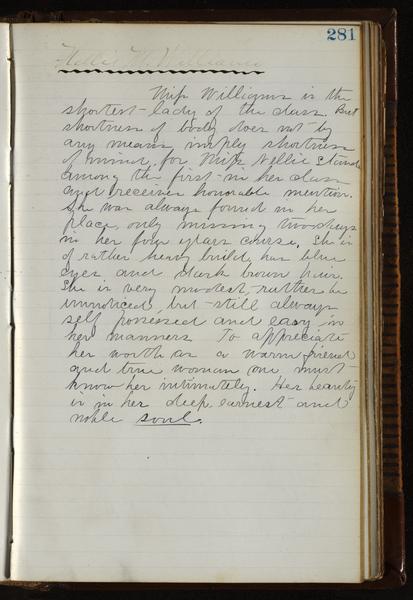 281
Nellie M. Williams
Miss Williams is the
shortest lady of the class. But
shortness of body does not by
any means imply shortness
of mind, for Miss Nellie stands
among the first in her class
and receives honorable mention.
She was always found in her
place, only missing two days
in her four years course. She is
of rather heavy build, has blue
eyes, and dark brown hair.
She is very modest, rather be
unnoticed, but still always
self possessed and easy in
her manners. To appreciate
her worth as a warm friend
and true woman one must
know her intimately. Her beauty
is in her deep earnest and
noble soul.